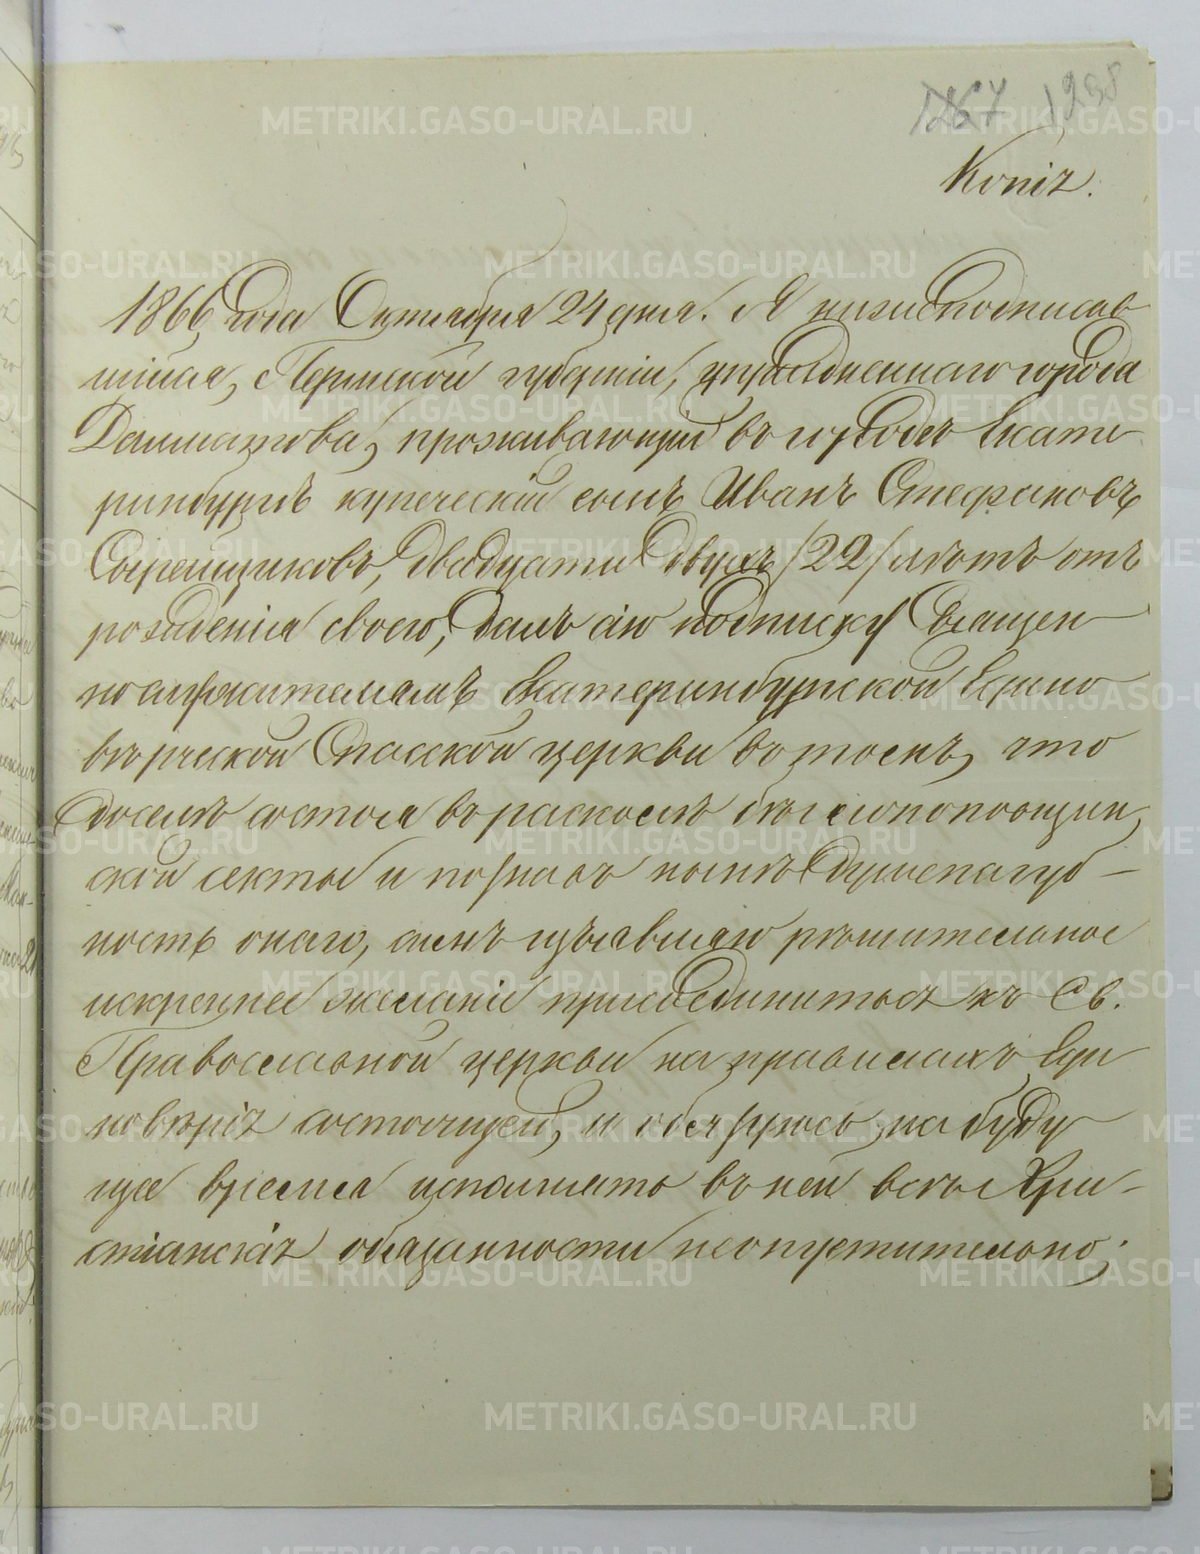 1267 1298
Копія.
1866 года Октября 24 дня. Я нижеподписав
шійся, Пермской губерніи, упраздненнаго города
Далматова, проживающій въ городѣ Екате
ринбургѣ купеческій сынъ Иванъ Стефановъ
двадцати двухъ /22/ лѣтъ отъ
рожденія своего, далъ сію подписку Священ
нослужителямъ Екатеринбургской Едино
вѣрческой Спасской церкви въ томъ, что
доселѣ состоя въ расколѣ бѣглопоповщин
ской секты и познавъ нынѣ душепагуб-
ность онаго, симъ изъявляю рѣшительное
искреннее желаніе присоединиться къ Св.
Православной церкви на правилахъ Еди
новѣрія состоящей, и обязуюсь на буду
щее время исполнять въ ней всѣ Хри-
стіанскія обязанности неопустительно;
METRIKI.GASO-URAL.RU